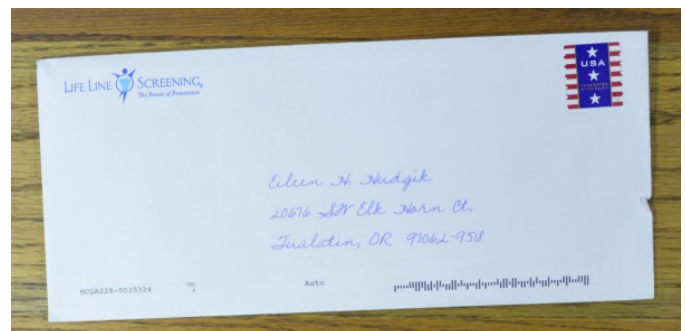 LIFE LINE SCREENING
The Power of Prevention
USA
PRESORTED
STANDARD
Eileen H. Hudgik
20676 SW Elk Horn Ct.
Tualatin, OR 97062-9518
MCQA028-0035324
Auto